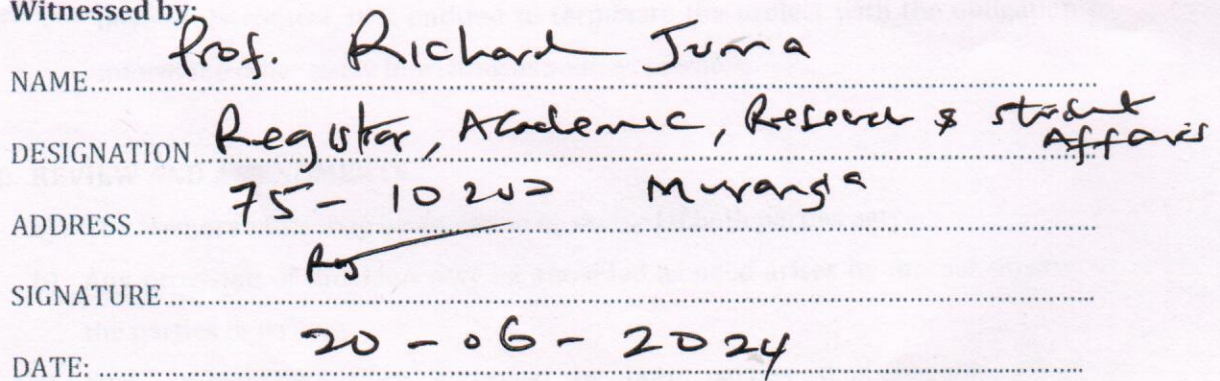 Witnessed by:
NAME Prof. Richard Juma
DESIGNATION Registrar, Academic, Research & Student Affairs
ADDRESS 75 - 10200 Murang'a
SIGNATURE
DATE: 20 - 06 - 2024